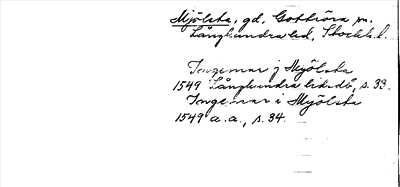 Mjölsta, gd, Gottröra sn.
Långhundra hd, Stockh. l.
Ingemar j Myölsta
1549 Långhundra lik.db, s. 33.
Ingemar i Myölsta
1549 a.a., s. 34.